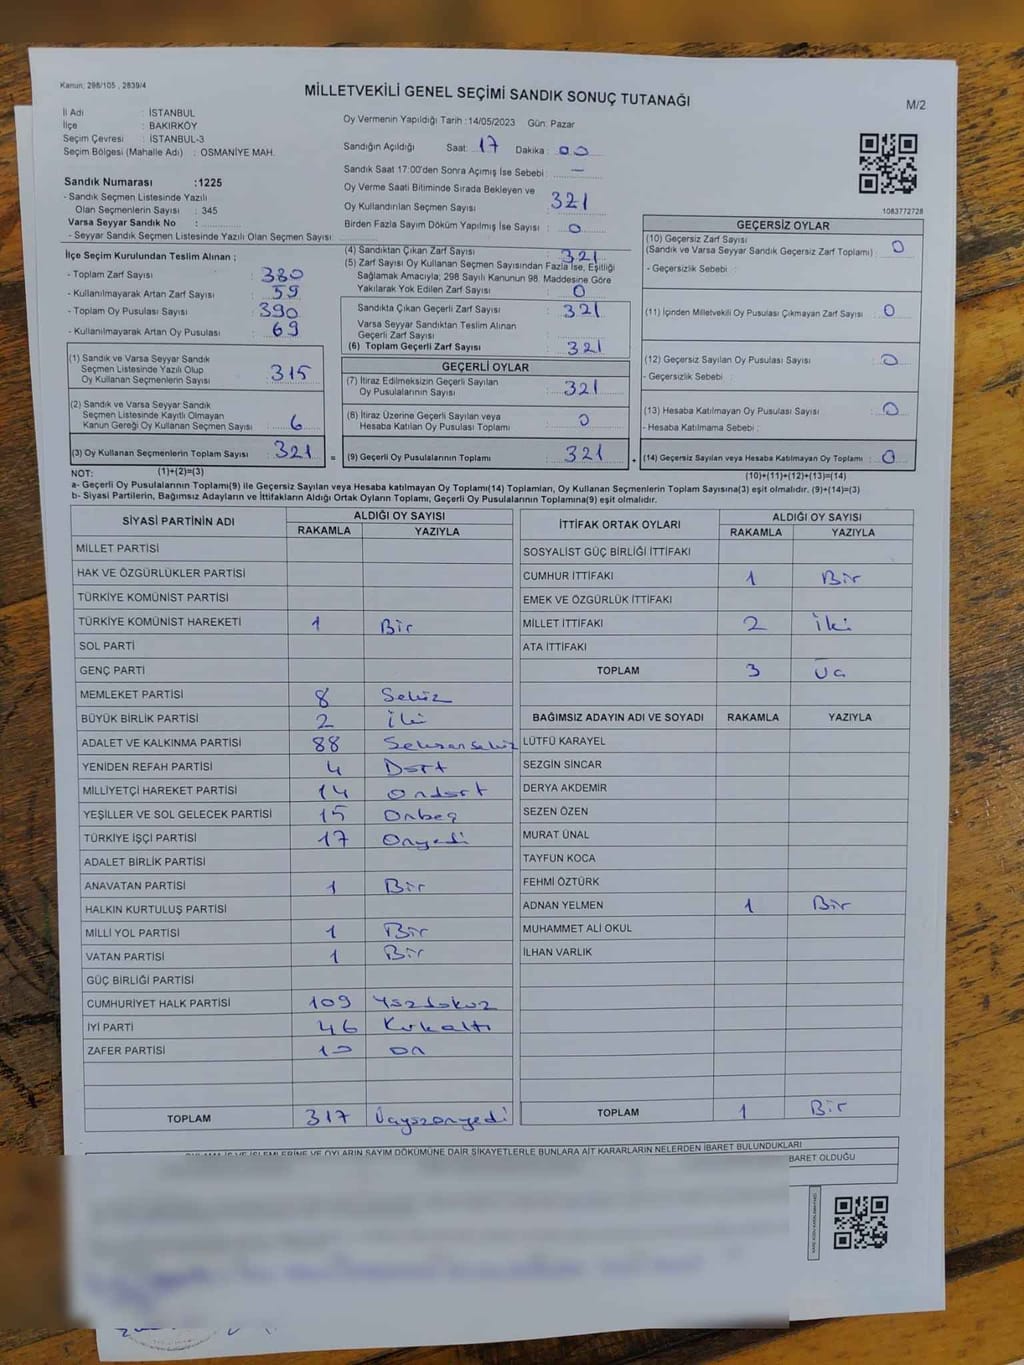 Kanun: 298/105 , 2839/4
MİLLETVEKİLİ GENEL SEÇİMİ SANDIK SONUÇ TUTANAĞI
M/2
İl Adı : İSTANBUL
İlçe : BAKIRKÖY
Seçim Çevresi : İSTANBUL-3
Seçim Bölgesi (Mahalle Adı) : OSMANİYE MAH.
Oy Vermenin Yapıldığı Tarih :14/05/2023 Gün: Pazar
Sandığın Açıldığı Saat: 17 Dakika : 00
Sandık Saat 17:00'den Sonra Açımış İse Sebebi : —
Oy Verme Saati Bitiminde Sırada Bekleyen ve
Oy Kullandırılan Seçmen Sayısı 321
Birden Fazla Sayım Döküm Yapılmış İse Sayısı : 0
1083772728
Sandık Numarası :1225
- Sandık Seçmen Listesinde Yazılı
Olan Seçmenlerin Sayısı : 345
Varsa Seyyar Sandık No :
- Seyyar Sandık Seçmen Listesinde Yazılı Olan Seçmen Sayısı:
İlçe Seçim Kurulundan Teslim Alınan ;
- Toplam Zarf Sayısı : 380
- Kullanılmayarak Artan Zarf Sayısı : 59
- Toplam Oy Pusulası Sayısı : 390
- Kullanılmayarak Artan Oy Pusulası : 69
(1) Sandık ve Varsa Seyyar Sandık
Seçmen Listesinde Yazılı Olup
Oy Kullanan Seçmenlerin Sayısı : 315
(2) Sandık ve Varsa Seyyar Sandık
Seçmen Listesinde Kayıtlı Olmayan
Kanun Gereği Oy Kullanan Seçmen Sayısı : 6
(3) Oy Kullanan Seçmenlerin Toplam Sayısı : 321 =
(4) Sandıktan Çıkan Zarf Sayısı : 321
(5) Zarf Sayısı Oy Kullanan Seçmen Sayısından Fazla İse, Eşitliği
Sağlamak Amacıyla; 298 Sayılı Kanunun 98. Maddesine Göre
Yakılarak Yok Edilen Zarf Sayısı : 0
Sandıkta Çıkan Geçerli Zarf Sayısı : 321
Varsa Seyyar Sandıktan Teslim Alınan
Geçerli Zarf Sayısı :
(6) Toplam Geçerli Zarf Sayısı : 321
GEÇERLİ OYLAR
(7) İtiraz Edilmeksizin Geçerli Sayılan
Oy Pusulalarının Sayısı : 321
(8) İtiraz Üzerine Geçerli Sayılan veya
Hesaba Katılan Oy Pusulası Toplamı : 0
(9) Geçerli Oy Pusulalarının Toplamı : 321 +
GEÇERSİZ OYLAR
(10) Geçersiz Zarf Sayısı
(Sandık ve Varsa Seyyar Sandık Geçersiz Zarf Toplamı) : 0
- Geçersizlik Sebebi :
(11) İçinden Milletvekili Oy Pusulası Çıkmayan Zarf Sayısı : 0
(12) Geçersiz Sayılan Oy Pusulası Sayısı : 0
- Geçersizlik Sebebi :
(13) Hesaba Katılmayan Oy Pusulası Sayısı : 0
- Hesaba Katılmama Sebebi :
(14) Geçersiz Sayılan veya Hesaba Katılmayan Oy Toplamı : 0
NOT: (1)+(2)=(3)
(10)+(11)+(12)+(13)=(14)
a- Geçerli Oy Pusulalarının Toplamı(9) ile Geçersiz Sayılan veya Hesaba katılmayan Oy Toplamı(14) Toplamları, Oy Kullanan Seçmenlerin Toplam Sayısına(3) eşit olmalıdır. (9)+(14)=(3)
b- Siyasi Partilerin, Bağımsız Adayların ve İttifakların Aldığı Ortak Oyların Toplamı, Geçerli Oy Pusulalarının Toplamına(9) eşit olmalıdır.
SİYASİ PARTİNİN ADI ALDIĞI OY SAYISI
RAKAMLA YAZIYLA
MİLLET PARTİSİ
HAK VE ÖZGÜRLÜKLER PARTİSİ
TÜRKİYE KOMÜNİST PARTİSİ
TÜRKİYE KOMÜNİST HAREKETİ 1 Bir
SOL PARTİ
GENÇ PARTİ
MEMLEKET PARTİSİ 8 Sekiz
BÜYÜK BİRLİK PARTİSİ 2 İki
ADALET VE KALKINMA PARTİSİ 88 Seksensekiz
YENİDEN REFAH PARTİSİ 4 Dört
MİLLİYETÇİ HAREKET PARTİSİ 14 Ondört
YEŞİLLER VE SOL GELECEK PARTİSİ 15 Onbeş
TÜRKİYE İŞÇİ PARTİSİ 17 Onyedi
ADALET BİRLİK PARTİSİ
ANAVATAN PARTİSİ 1 Bir
HALKIN KURTULUŞ PARTİSİ
MİLLİ YOL PARTİSİ 1 Bir
VATAN PARTİSİ 1 Bir
GÜÇ BİRLİĞİ PARTİSİ
CUMHURİYET HALK PARTİSİ 109 Yüzdokuz
İYİ PARTİ 46 Kırkaltı
ZAFER PARTİSİ 10 on
TOPLAM 317 Üçyüzonyedi
İTTİFAK ORTAK OYLARI ALDIĞI OY SAYISI
RAKAMLA YAZIYLA
SOSYALİST GÜÇ BİRLİĞİ İTTİFAKI
CUMHUR İTTİFAKI 1 Bir
EMEK VE ÖZGÜRLÜK İTTİFAKI
MİLLET İTTİFAKI 2 İki
ATA İTTİFAKI
TOPLAM 3 Üç
BAĞIMSIZ ADAYIN ADI VE SOYADI RAKAMLA YAZIYLA
LÜTFÜ KARAYEL
SEZGİN SİNCAR
DERYA AKDEMİR
SEZEN ÖZEN
MURAT ÜNAL
TAYFUN KOCA
FEHMİ ÖZTÜRK
ADNAN YELMEN 1 Bir
MUHAMMET ALİ OKUL
İLHAN VARLIK
TOPLAM 1 Bir
İŞLEMLERİNE VE OYLARIN SAYIM DÖKÜMÜNE DAİR ŞİKAYETLERLE BUNLARA AİT KARARLARIN NELERDEN İBARET BULUNDUKLARI
İBARET OLDUĞU